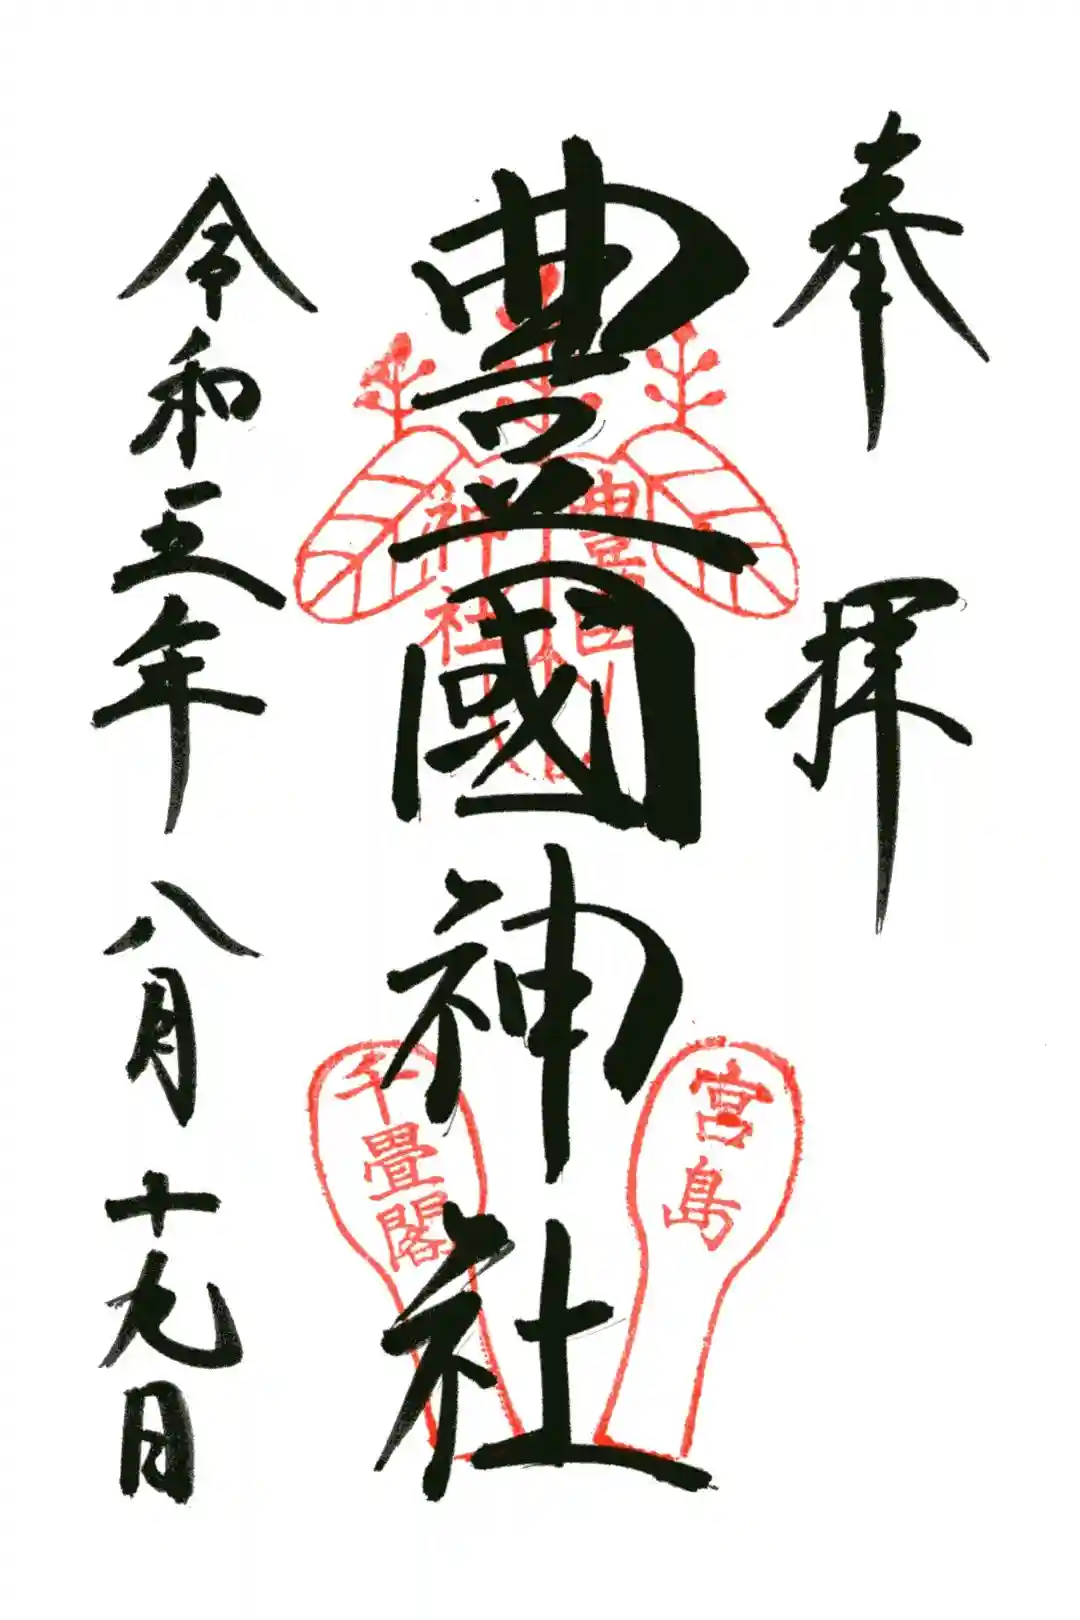 奉拝
豊國神社
豊國
神社
宮島
千畳閣
令和五年八月十九日